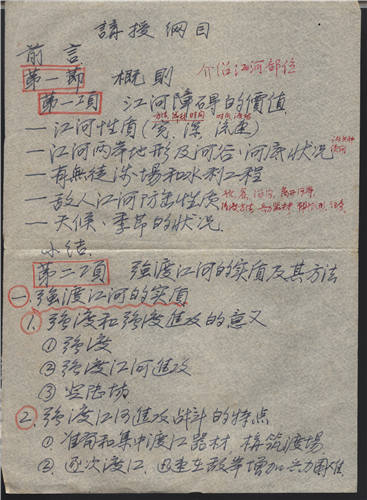 講授綱目
前言
第一節 概則 介绍江河部位
第一項 江河障碍的價值
一江河性质(宽 深 流速)
一江河两岸地形及河谷、河底状况
一有無徒涉場和水利工程
一敌人江河防禦性质
一天候、季節的状况
小结
第二項 強渡江河的实质及其方法
一、強渡江河的实质
1. 強渡和強渡進攻的意义
①強渡
②強渡江河進攻
③
2. 強渡江河進攻战斗的特点
①准备和集中渡江器材 构筑渡場
②逐次渡江